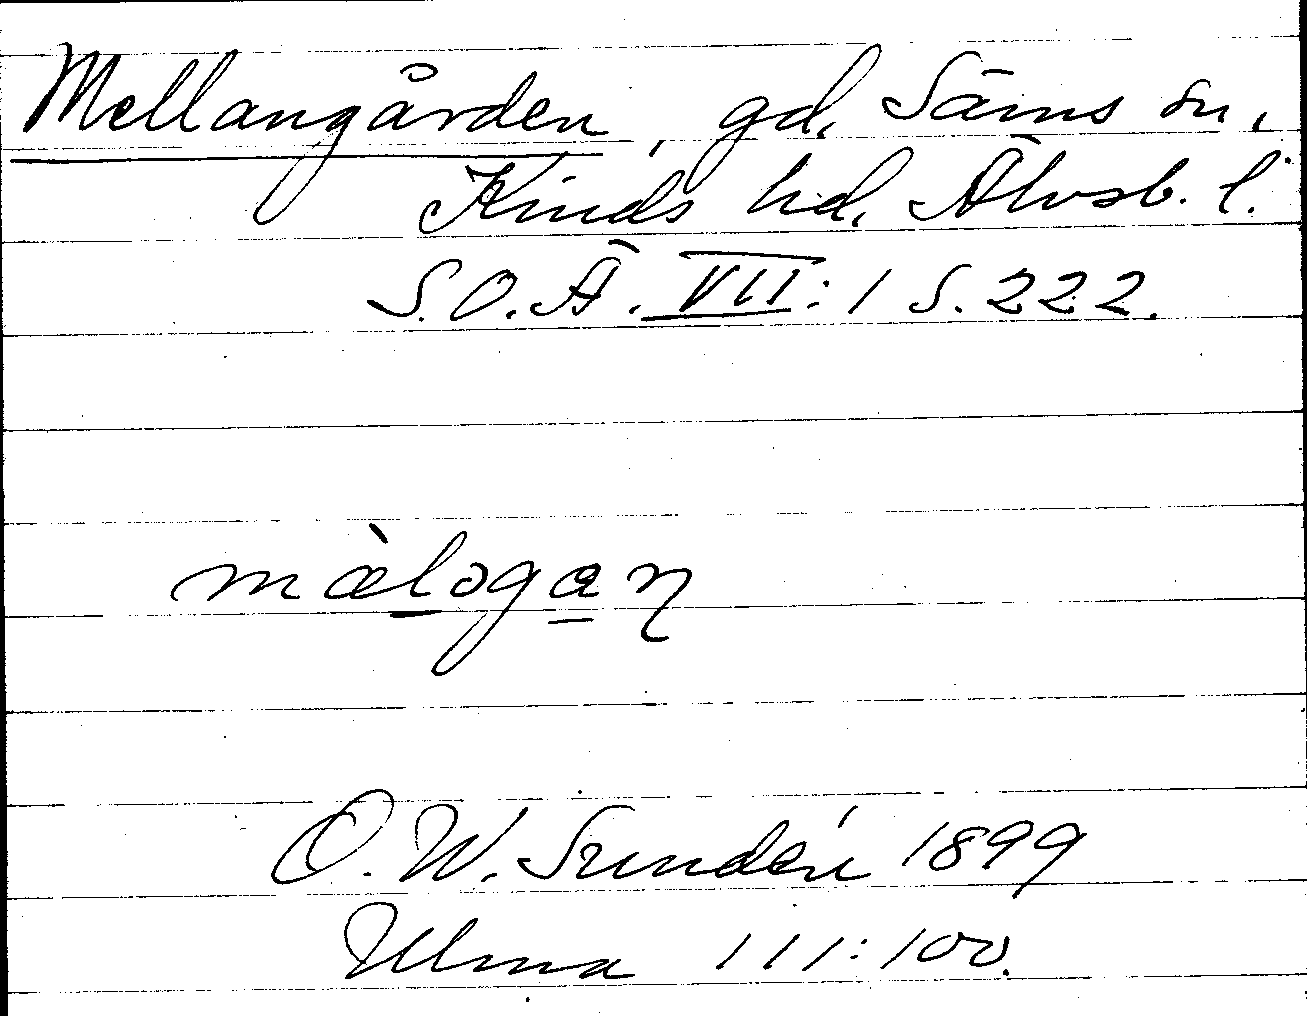 Mellangården, gd, Säms sn,
Kinds hd, Älvsb. l.
S.O.Ä. VII: 1 S. 222.
mæ̀logan
O. W. Sundén 1899
Ulma 111:100.